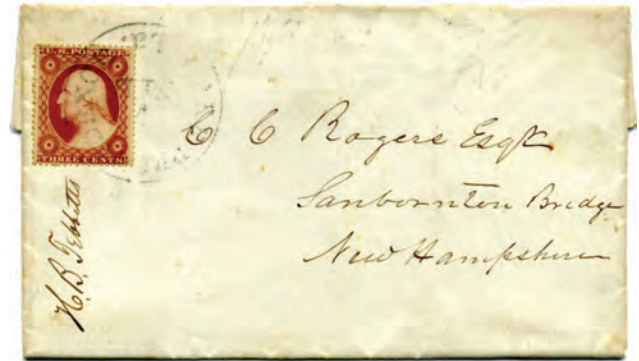 U.S. POSTAGE
THREE CENTS
C C Rogers Esqr
Sanbornton Bridge
New Hampshire
H. B. Tebbetts